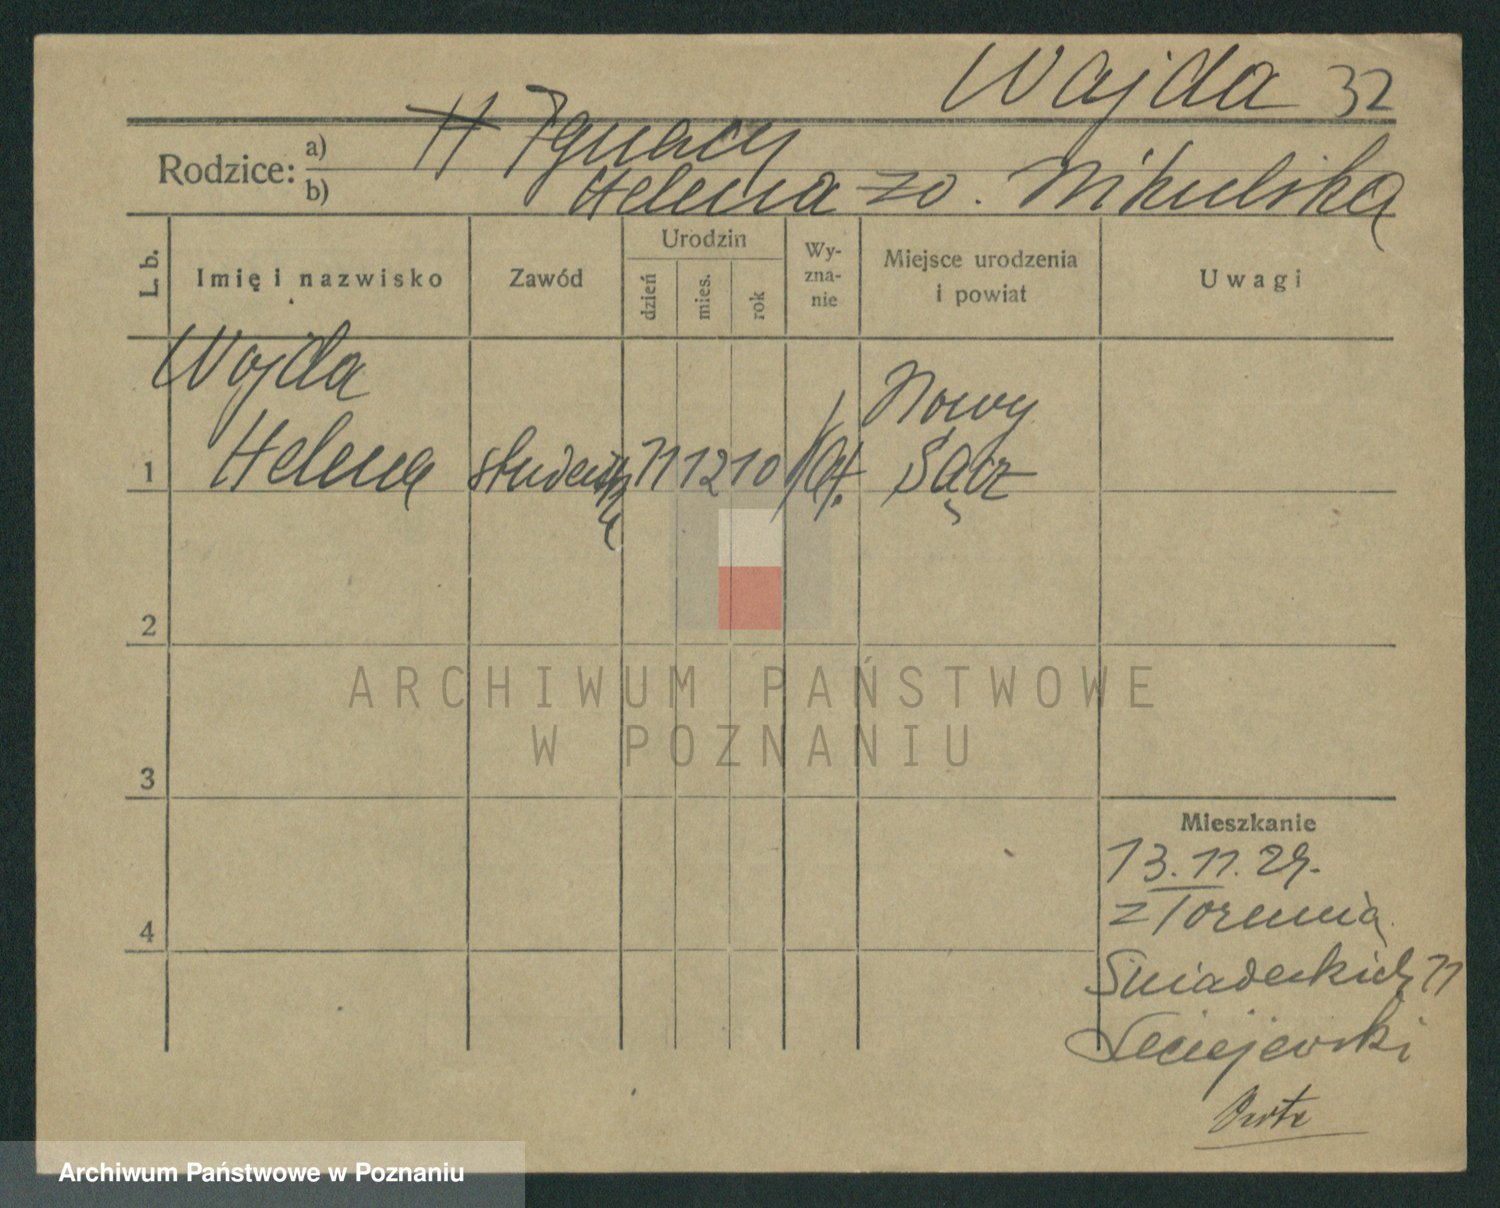 Wajda 32
Rodzice: a) H Ignacy
b) Helena zo. Mikulska
L. b. Imię i nazwisko Zawód Urodzin dzień mies. rok Wy-zna-nie Miejsce urodzenia i powiat Uwagi
Wajda
Nowy
1 Helena studentka 11 12 10 kat. Sącz
2
3
4
Mieszkanie
13.11.29.
z Torunia
Śniadeckich 11
ARCHIWUM PAŃSTWOWE
W POZNANIU
Archiwum Państwowe w Poznaniu